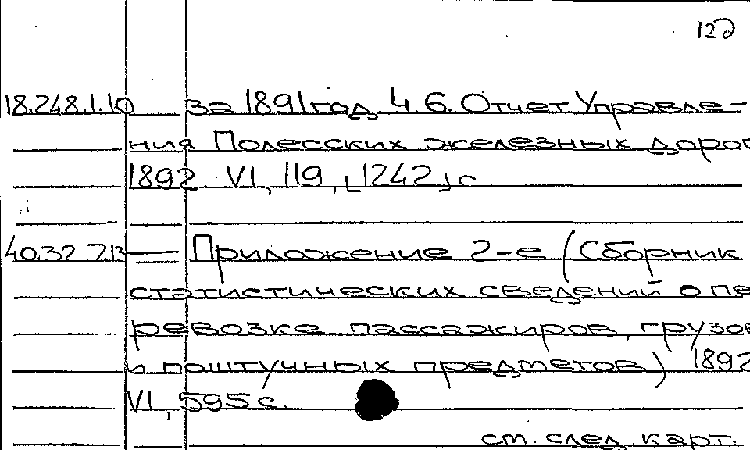 122
18.248.1.10 за 1891 год, Ч. Б. Отчет Управле-
ния Полесских железных дорог
1892 VI, 119, [1242] с
40.32.7.13 — Приложение 2-е (Сборник
статистических сведений о пе
ревозке пассажиров, грузов
и поштучных предметов) 1892
VI, 595 с.
см. след карт.